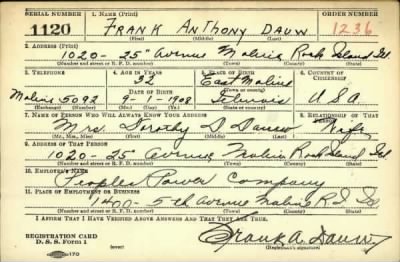 SERIAL NUMBER 1. NAME (Print) ORDER NUMBER
1120 FRANK ANTHONY DAUW 1236
(First) (Middle) (Last)
2. ADDRESS (Print)
1020-25" Avenue Moline Rock Island Ill.
(Number and street or R. F. D. number) (Town) (County) (State)
3. TELEPHONE 4. AGE IN YEARS 5. PLACE OF BIRTH 6. COUNTRY OF CITIZENSHIP
32 East Moline
DATE OF BIRTH (Town or county)
Moline 5092 9-1-1908 Illinois USA
(Exchange) (Number) (Mo.) (Day) (Yr.) (State or country)
7. NAME OF PERSON WHO WILL ALWAYS KNOW YOUR ADDRESS 8. RELATIONSHIP OF THAT PERSON
Mrs. Dorothy D Dauw Wife
(Mr., Mrs., Miss) (First) (Middle) (Last)
9. ADDRESS OF THAT PERSON
1020-25 Avenue Moline Rock Island Ill
(Number and street or R. F. D. number) (Town) (County) (State)
10. EMPLOYER'S NAME
Peoples Power Company
11. PLACE OF EMPLOYMENT OR BUSINESS
1400-5th Avenue Moline R.I. Ill
(Number and street or R. F. D. number) (Town) (County) (State)
I AFFIRM THAT I HAVE VERIFIED ABOVE ANSWERS AND THAT THEY ARE TRUE.
REGISTRATION CARD
D. S. S. Form 1 Frank A. Dauw
(Registrant's signature)